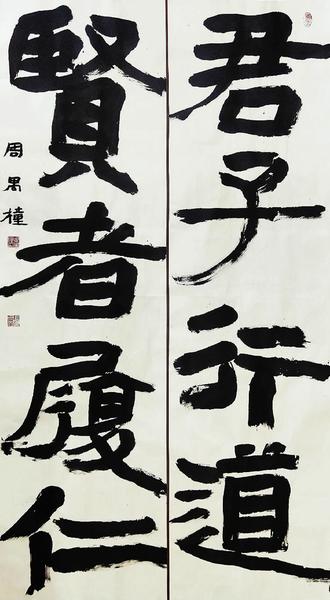 君子行道
賢者履仁
周禺橦